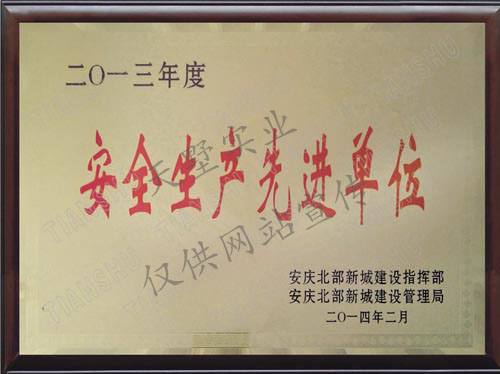 二〇一三年度
安全生产先进单位
天墅实业
仅供网站宣传
安庆北部新城建设指挥部
安庆北部新城建设管理局
二〇一四年二月
TIANSHU
TIANSHU
TIANSHU
TIANSHU